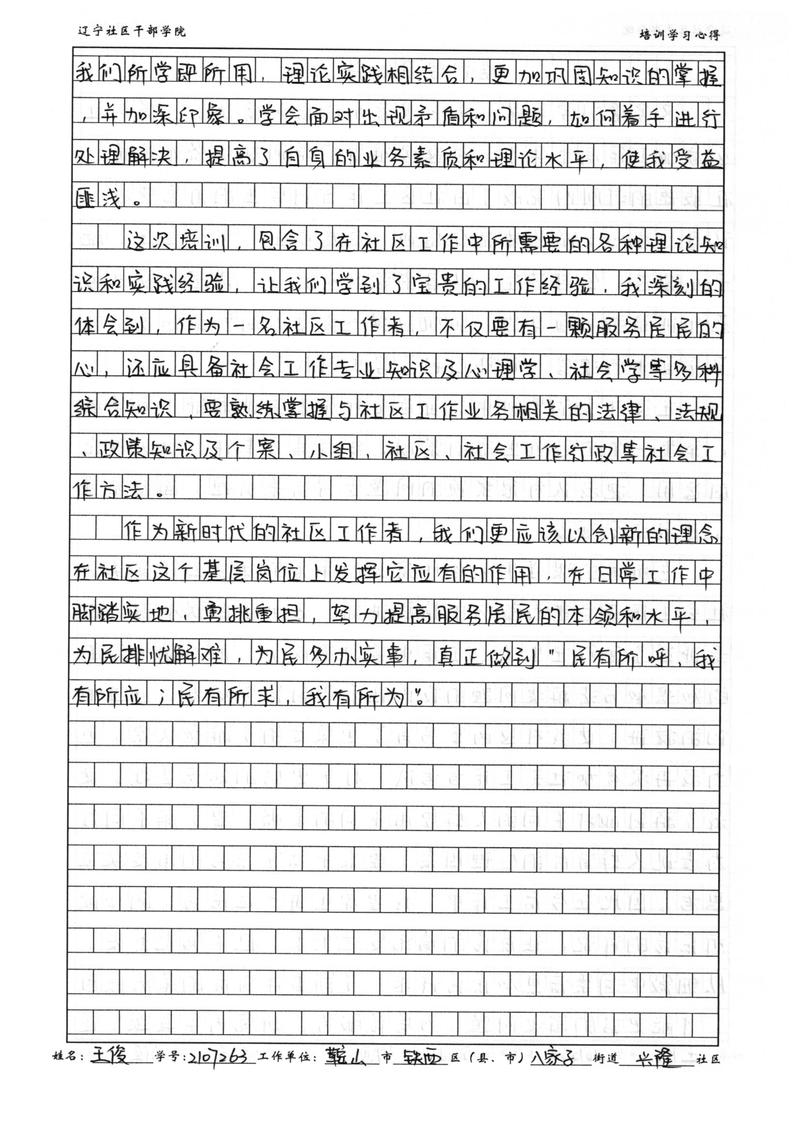 辽宁社区干部学院 培训学习心得
我们所学即所用，理论实践相结合，更加巩固知识的掌握
，并加深印象。学会面对出现矛盾和问题，如何着手进行
处理解决，提高了自身的业务素质和理论水平，使我受益
匪浅。
这次培训，包含了在社区工作中所需要的各种理论知
识和实践经验，让我们学到了宝贵的工作经验，我深刻的
体会到，作为一名社区工作者，不仅要有一颗服务居民的
心，还应具备社会工作专业知识及心理学、社会学等多科
综合知识，要熟练掌握与社区工作业务相关的法律、法规
、政策知识及个案、小组、社区、社会工作行政等社会工
作方法。
作为新时代的社区工作者，我们更应该以创新的理念
在社区这个基层岗位上发挥它应有的作用，在日常工作中
脚踏实地，勇挑重担，努力提高服务居民的本领和水平，
为民排忧解难，为民多办实事，真正做到"民有所呼，我
有所应；民有所求，我有所为"。
姓名：王俊 学号：2107263 工作单位：鞍山 市 铁西 区（县、市）八家子 街道 兴隆 社区